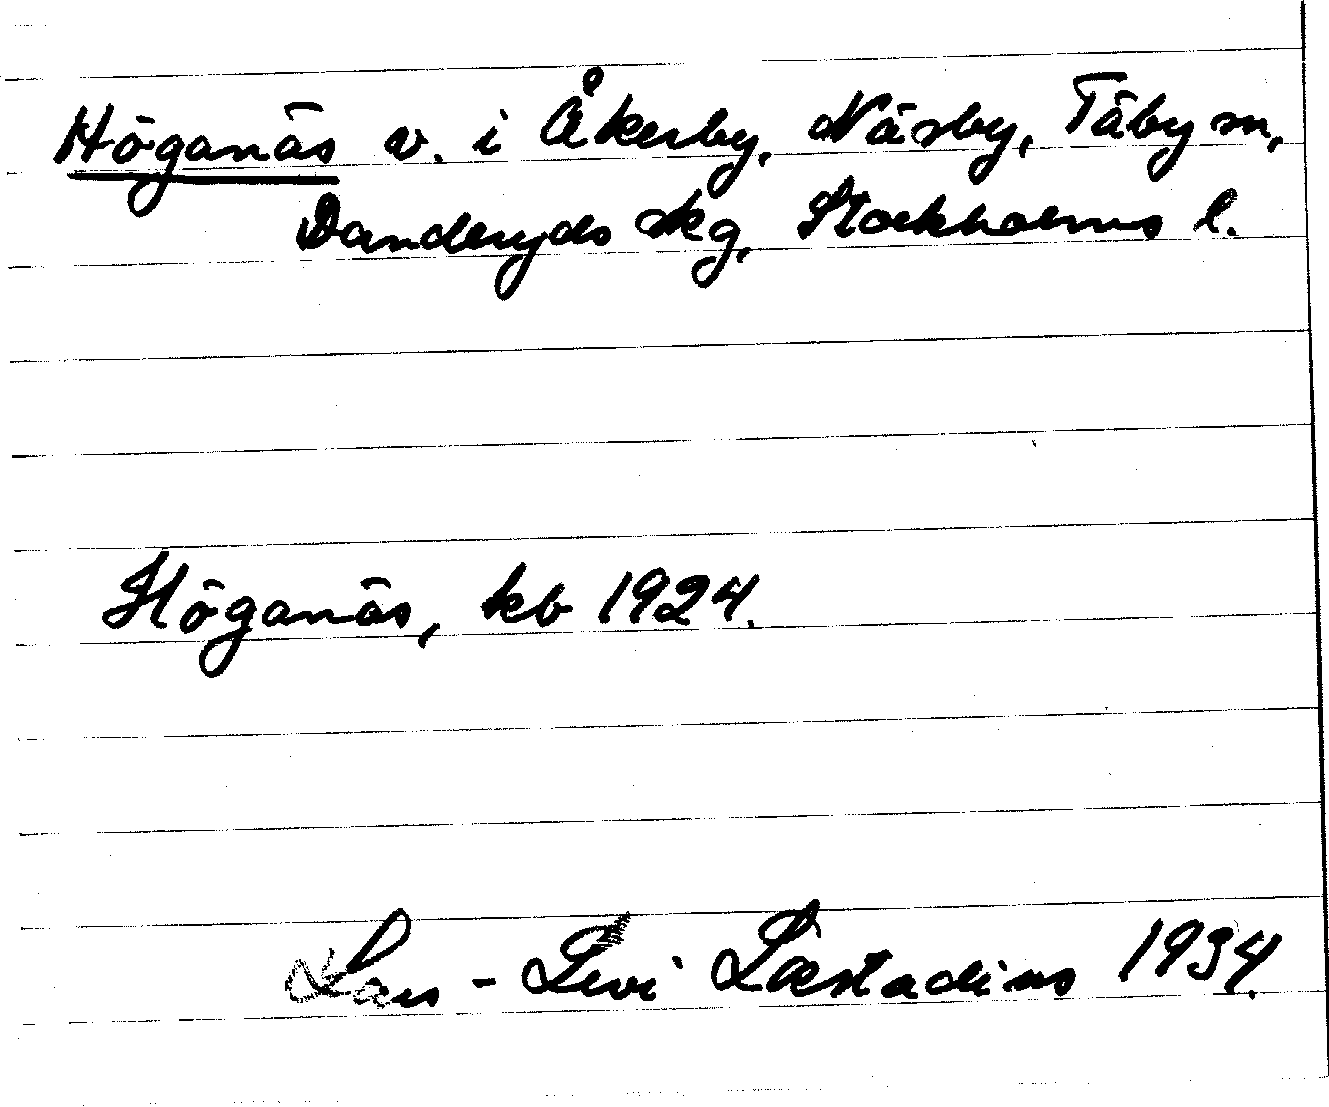 Höganäs v. i Åkerby, Näsby, Täby sn,
Danderyds skg, Stockholms l.
Höganäs, kb 1924.
Lars-Levi Læstadius 1934.